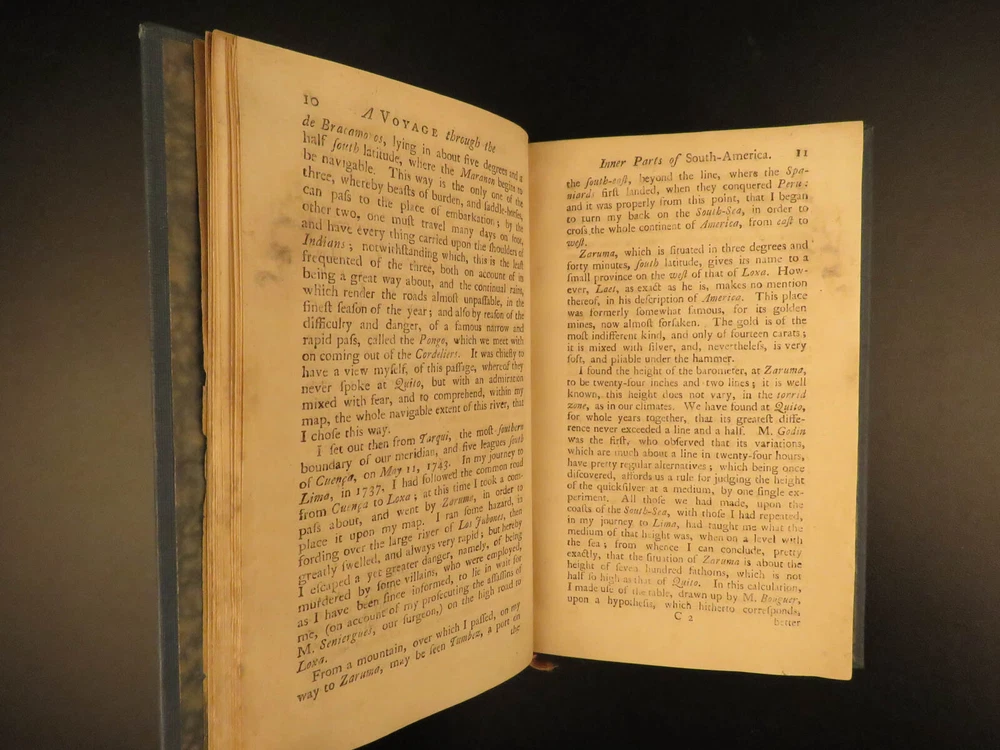 10 A VOYAGE through the
de Bracamoros, lying in about five degrees and a
half ſouth latitude, where the Maranon begins to
be navigable. This way is the only one of the
three, whereby beaſts of burden, and ſaddle-horſes,
can paſs to the place of embarkation; by the
other two, one muſt travel many days on foot,
and have every thing carried upon the ſhoulders of
Indians; notwithſtanding which, this is the leaſt
frequented of the three, both on account of its
being a great way about, and the continual rains,
which render the roads almoſt unpaſſable, in the
fineſt ſeaſon of the year; and alſo by reaſon of the
difficulty and danger, of a famous narrow and
rapid paſs, called the Pongo, which we meet with
on coming out of the Cordeliers. It was chiefly to
have a view myſelf, of this paſſage, whereof they
never ſpoke at Quito, but with an admiration
mixed with fear, and to comprehend, within my
map, the whole navigable extent of this river, that
I choſe this way.
I ſet out then from Tarqui, the moſt ſouthern
boundary of our meridian, and five leagues ſouth
of Cuença, on May 11, 1743. In my journey to
Lima, in 1737, I had followed the common road
from Cuença to Loxa; at this time I took a com-
paſs about, and went by Zaruma, in order to
place it upon my map. I ran ſome hazard, in
fording over the large river of Los Jubones, then
greatly ſwelled, and always very rapid; but hereby
I eſcaped a yet greater danger, namely, of being
murdered by ſome villains, who were employed,
as I have been ſince informed, to lie in wait for
me, (on account of my proſecuting the aſſaſſins of
M. Seniergues, our ſurgeon,) on the high road to
Loxa.
From a mountain, over which I paſſed, on my
way to Zaruma, may be ſeen Tumbez, a port on
the
Inner Parts of South-America. 11
the ſouth-eaſt, beyond the line, where the Spa-
niards firſt landed, when they conquered Peru;
and it was properly from this point, that I began
to turn my back on the South-Sea, in order to
croſs the whole continent of America, from eaſt to
weſt.
Zaruma, which is ſituated in three degrees and
forty minutes, ſouth latitude, gives its name to a
ſmall province on the weſt of that of Loxa. How-
ever, Laet, as exact as he is, makes no mention
thereof, in his deſcription of America. This place
was formerly ſomewhat famous, for its golden
mines, now almoſt forſaken. The gold is of the
moſt indifferent kind, and only of fourteen carats;
it is mixed with ſilver, and, nevertheleſs, is very
ſoft, and pliable under the hammer.
I found the height of the barometer, at Zaruma,
to be twenty-four inches and two lines; it is well
known, this height does not vary, in the torrid
zone, as in our climates. We have found at Quito,
for whole years together, that its greateſt diffe-
rence never exceeded a line and a half. M. Godin
was the firſt, who obſerved that its variations,
which are much about a line in twenty-four hours,
have pretty regular alternatives; which being once
diſcovered, affords us a rule for judging the height
of the quickſilver at a medium, by one ſingle ex-
periment. All thoſe we had made, upon the
coaſts of the South-Sea, with thoſe I had repeated,
in my journey to Lima, had taught me what the
medium of that height was, when on a level with
the ſea; from whence I can conclude, pretty
exactly, that the ſituation of Zaruma is about the
height of ſeven hundred fathoms, which is not
half ſo high as that of Quito. In this calculation,
I made uſe of the table, drawn up by M. Bouguer,
upon a hypotheſis, which hitherto correſponds,
C 2
better